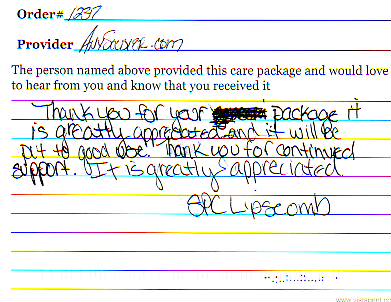 Order# 1237
Provider
The person named above provided this care package and would love
to hear from you and know that you received it
Thank you for your package it
is greatly appreciated and it will be
put to good use. Thank you for continued
support. It is greatly apprecinted.
SPC Lipscomb